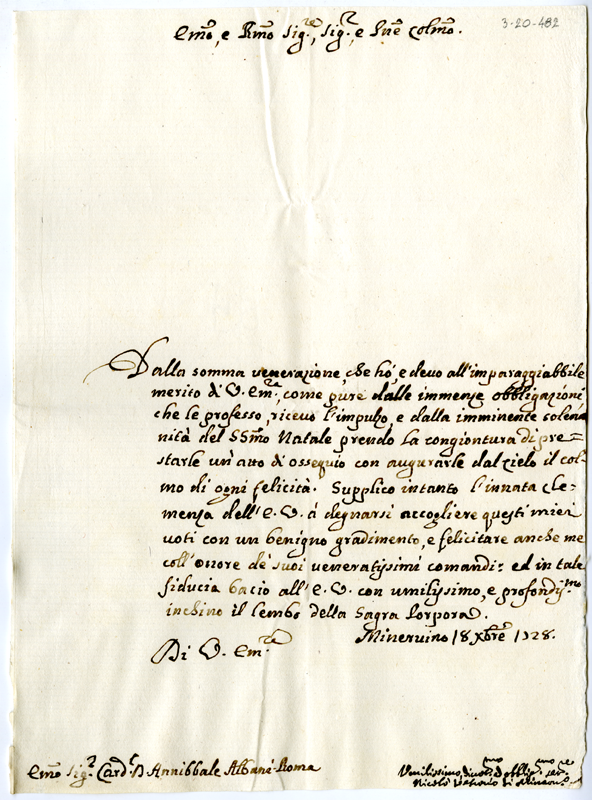 3-20-482
Emo, e Rmo Sigre, Sigr e Prne Colmo.
Dalla somma venerazione, che hó, e devo all'imparaggiabbile
merito di V. Emza, come pure dalle immense obbligazioni,
che le professo, ricevo l'impulzo, e dalla imminente solen
nità del SSmo Natale prendo la congiontura di pre=
starle un'atto di ossequio con augurarle dal cielo il col=
mo di ogni felicità. Supplico intanto l'innata cle=
menza dell'E. V. á degnarsi accogliere questi miei
voti con un benigno gradimento, e felicitare anche me
coll'onore de' suoi veneratissimi comandi: ed in tale
fiducia bacio all'E. V. con umilissimo, e profondissmo
inchino il lembo della Sagra Porpora.
Minervino 18 Xbre 1728.
Di V. Emza
Emo Sigr Cardl D Annibbale Albani Roma
Umilissimo, divotmo obbligmo ser
Nicolò Vescovo di Minervo